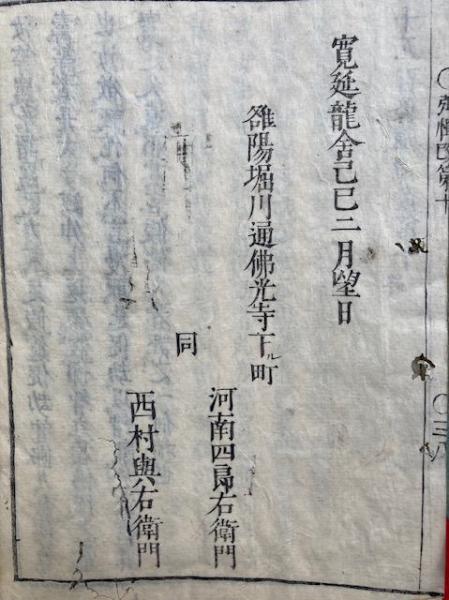 寛延龍舎己巳二月望日
雒陽堀川通佛光寺下ル町
河南四郎右衛門
同
西村與右衛門